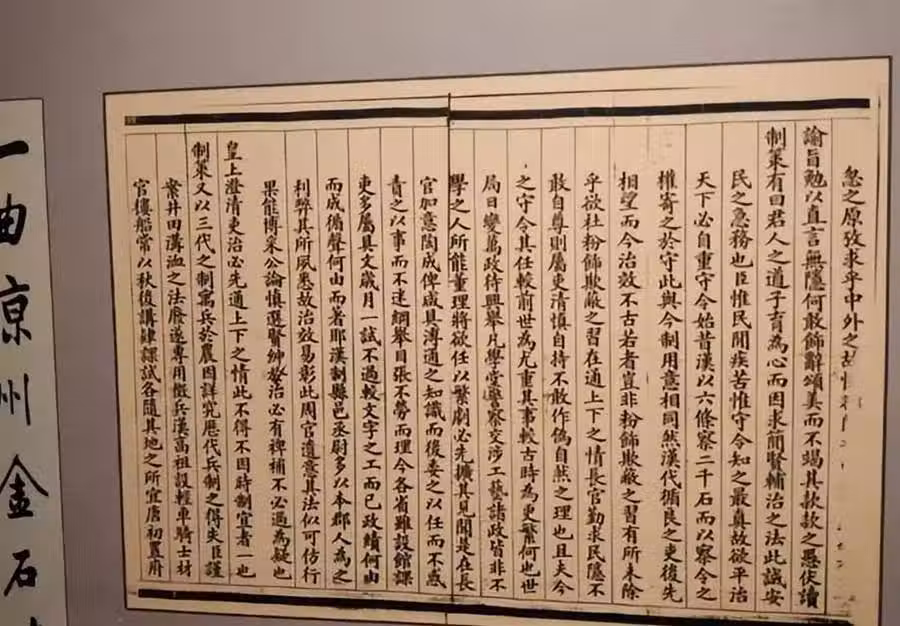 忽之原孜求乎中外之故
諭旨勉以直言無隱何敢飾辭頌美而不竭其款款之愚伏讀
制策有曰君人之道子育為心而因求簡賢輔治之法此誠安
民之急務也臣惟民間疾苦惟守令知之最真故欲平治
天下必自重守令始昔漢以六條察二千石而以察令之
權寄之於守此與今制用意相同然漢代循良之吏後先
相望而今治效不古若者豈非粉飾欺蔽之習有所未除
乎欲杜粉飾欺蔽之習在通上下之情長官勤求民隱不
敢自尊則屬吏清慎自持不敢作偽自然之理也且夫今
之守令其任較前世為尤重其事較古時為更繁何也世
局日變萬政待興舉凡學堂警察交涉工藝諸政皆非不
學之人所能董理將欲任以繁劇必先擴其見聞是在長
官加意陶成俾咸具溥通之知識而後委之以任而不惑
責之以事而不迷綱舉目張不勞而理今各省雖設館課
吏多屬具文歲月一試不過較文字之工而已政績何由
而成循聲何由而著耶漢制縣邑丞尉多以本郡人為之
利弊其所夙悉故治效易彰此周官遺意其法似可仿行
果能博采公論慎選賢紳鄉治必有裨補不必過為疑也
皇上澄清吏治必先通上下之情此不得不因時制宜者一也
制策又以三代之制寓兵於農因詳究歷代兵制之得失臣謹
案井田溝洫之法廢遂專用徵兵漢高祖設輕車騎士材
官樓船常以秋後講肄課試各隨其地之所宜唐初置府
一曲涼州金石